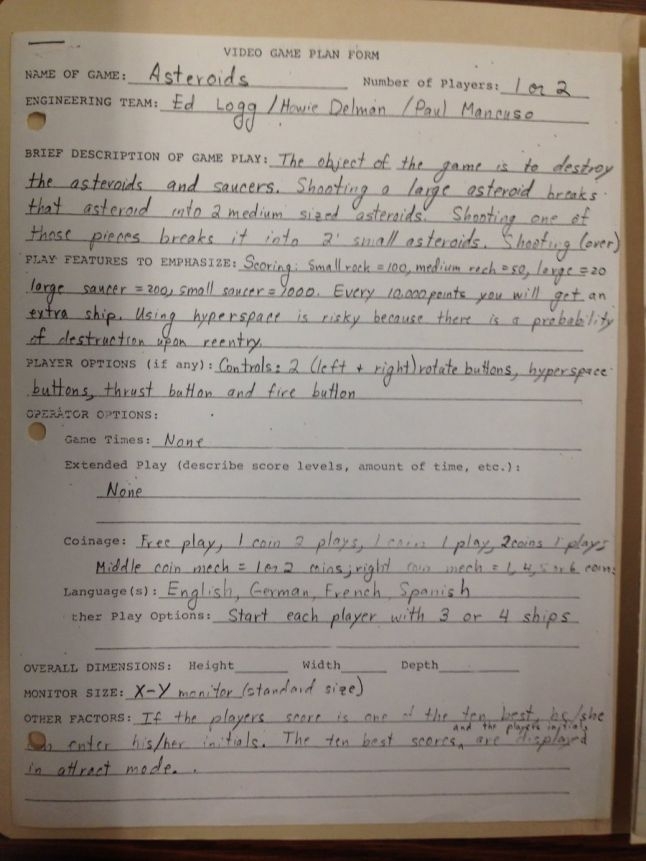 VIDEO GAME PLAN FORM
NAME OF GAME: Asteroids Number of Players: 1 or 2
ENGINEERING TEAM: Ed Logg / Howie Delman / Paul Mancuso
BRIEF DESCRIPTION OF GAME PLAY: The object of the game is to destroy
the asteroids and saucers. Shooting a large asteroid breaks
that asteroid into 2 medium sized asteroids. Shooting one of
those pieces breaks it into 2 small asteroids. Shooting (over)
PLAY FEATURES TO EMPHASIZE: Scoring: Small rock = 100, medium rock = 50, large = 20
large saucer = 200, small saucer = 1000. Every 10,000 points you will get an
extra ship. Using hyperspace is risky because there is a probability
of destruction upon reentry.
PLAYER OPTIONS (if any): Controls: 2 (left + right) rotate buttons, hyperspace
buttons, thrust button and fire button
OPERATOR OPTIONS:
Game Times: None
Extended Play (describe score levels, amount of time, etc.):
None
Coinage: Free play, 1 coin 2 plays, 1 coin 1 play, 2 coins 1 plays
Middle coin mech = 1 or 2 coins; right coin mech = 1, 4, 5 or 6 coins
Language(s): English, German, French, Spanish
ther Play Options: Start each player with 3 or 4 ships
OVERALL DIMENSIONS: Height Width Depth
MONITOR SIZE: X-Y monitor (standard size)
OTHER FACTORS: If the players score is one of the ten best, he/she
and the players initials
enter his/her initials. The ten best scores, are displayed
in attract mode.